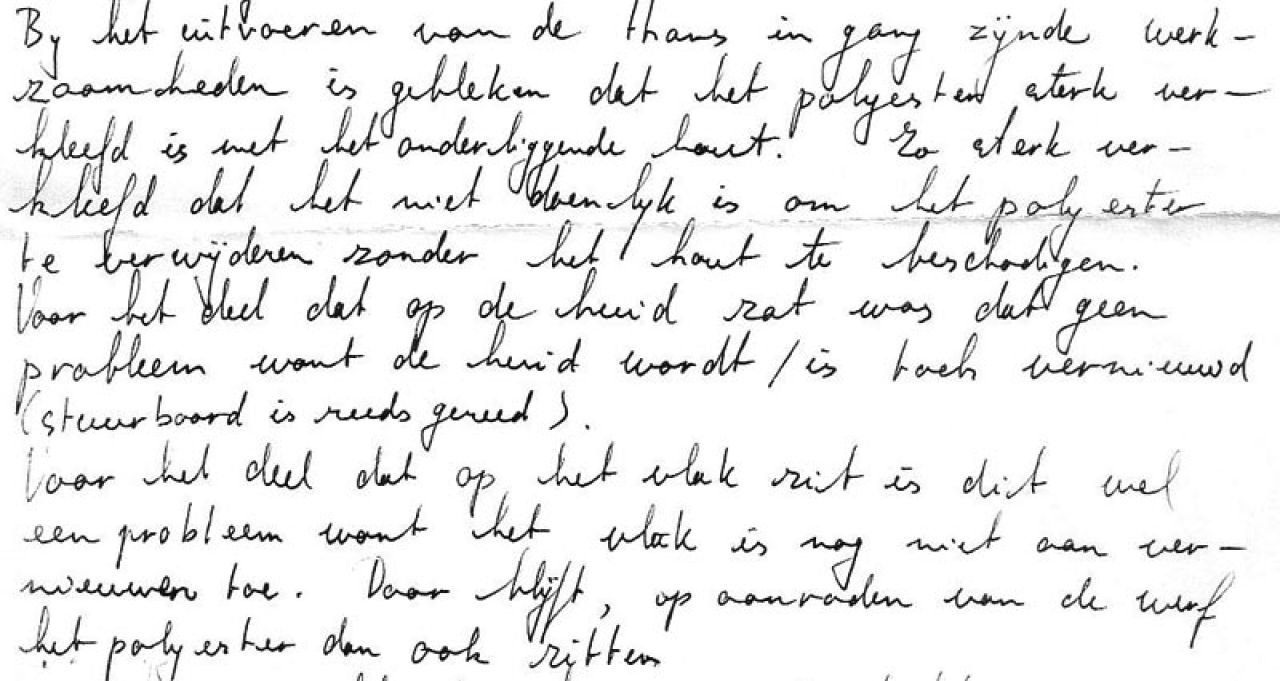 By het uitvoeren van de thans in gang zijnde werk-
zaamheden is gebleken dat het polyester sterk ver-
kleefd is met het onderliggende hout. Zo sterk ver-
kleefd dat het niet doenlyk is om het polyester
te verwijderen zonder het hout te beschadigen.
Voor het deel dat op de huid zat was dat geen
probleem want de huid wordt / is toch vernieuwd
(stuurboord is reeds gereed).
Voor het deel dat op het vlak zit is dit wel
een probleem want het vlak is nog niet aan ver-
nieuwen toe. Daar blijft, op aanraden van de werf
het polyester dan ook zitten